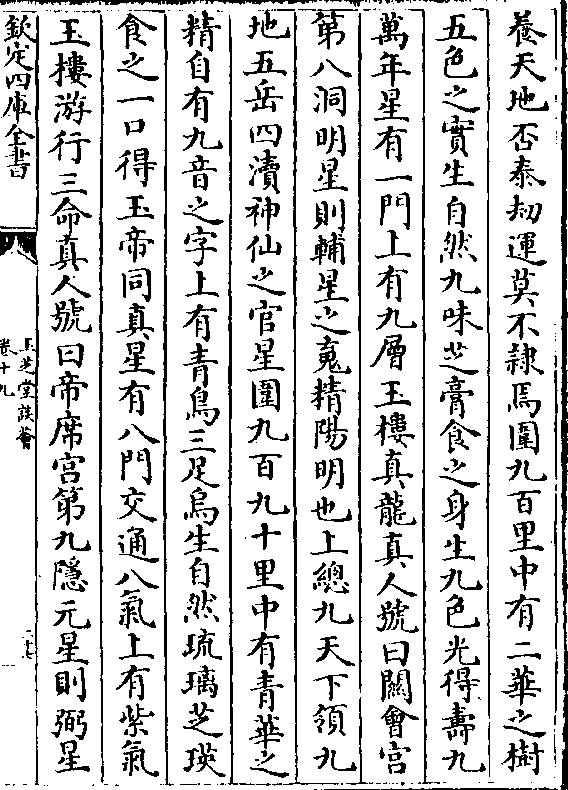 養天地否泰刼運莫不隷焉圍九百里中有二華之樹
五色之實生自然九味芝膏食之身生九色光得壽九
萬年星有一門上有九層玉樓真龍真人號曰闗會宫
第八洞明星則輔星之䰟精陽明也上總九天下領九
地五岳四瀆神仙之官星圍九百九十里中有青華之
精自有九音之字上有青鳥三足烏生自然琉璃芝瑛
食之一口得玉帝同真星有八門交通八氣上有紫氣
玉樓游行三命真人號曰帝席宫第九隱元星則弼星
欽定四庫全書
玉芝堂談薈
卷十九